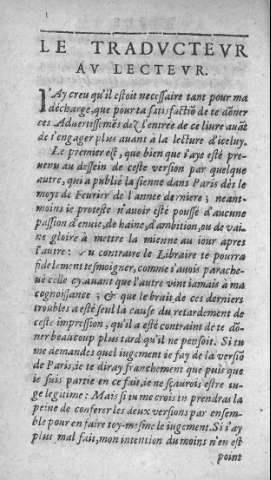 LE TRADVCTEVR
AV LECTEVR.
I'Ay creu qu'il estoit necessaire tant pour ma
décharge, que pour ta satisfactiõ de te dõner
ces Aduertissemẽs dez l'entrée de ce liure auãt
de t'engager plus auant à la lecture d'iceluy.
Le premier est, que bien que i'aye esté pre-
uenu au dessein de ceste version par quelque
autre, qui a publié la sienne dans Paris dés le
moys de Feurier de l'année derniere; neant-
moins ie proteste n'auoir esté poussé d'aucune
passion d'enuie, de haine, d'ambition, ou de vai-
ne gloire à mettre la mienne au iour apres
l'autre: au contraire le Libraire te pourra
fidelement tesmoigner, comme i'auois parache-
ué celle cy auant que l'autre vint iamais à ma
cognoissance; & que le brait de ces derniers
troubles a esté seul la cause du retardement de
ceste impression, qu'il a esté contraint de te dõ-
ner beaucoup plus tard qu'il ne pensoit. Si tu
me demandes quel iugement ie fay de la versiõ
de Paris, ie te diray franchement que puis que
ie suis partie en ce fait, ie ne sçaurois estre iu-
ge legitime: Mais si tu me crois tu prendras la
peine de conferer les deux versions par ensem-
ble pour en faire toy-mesme le iugement. Si i'ay
plus mal fait, mon intention du moins n'en est
point